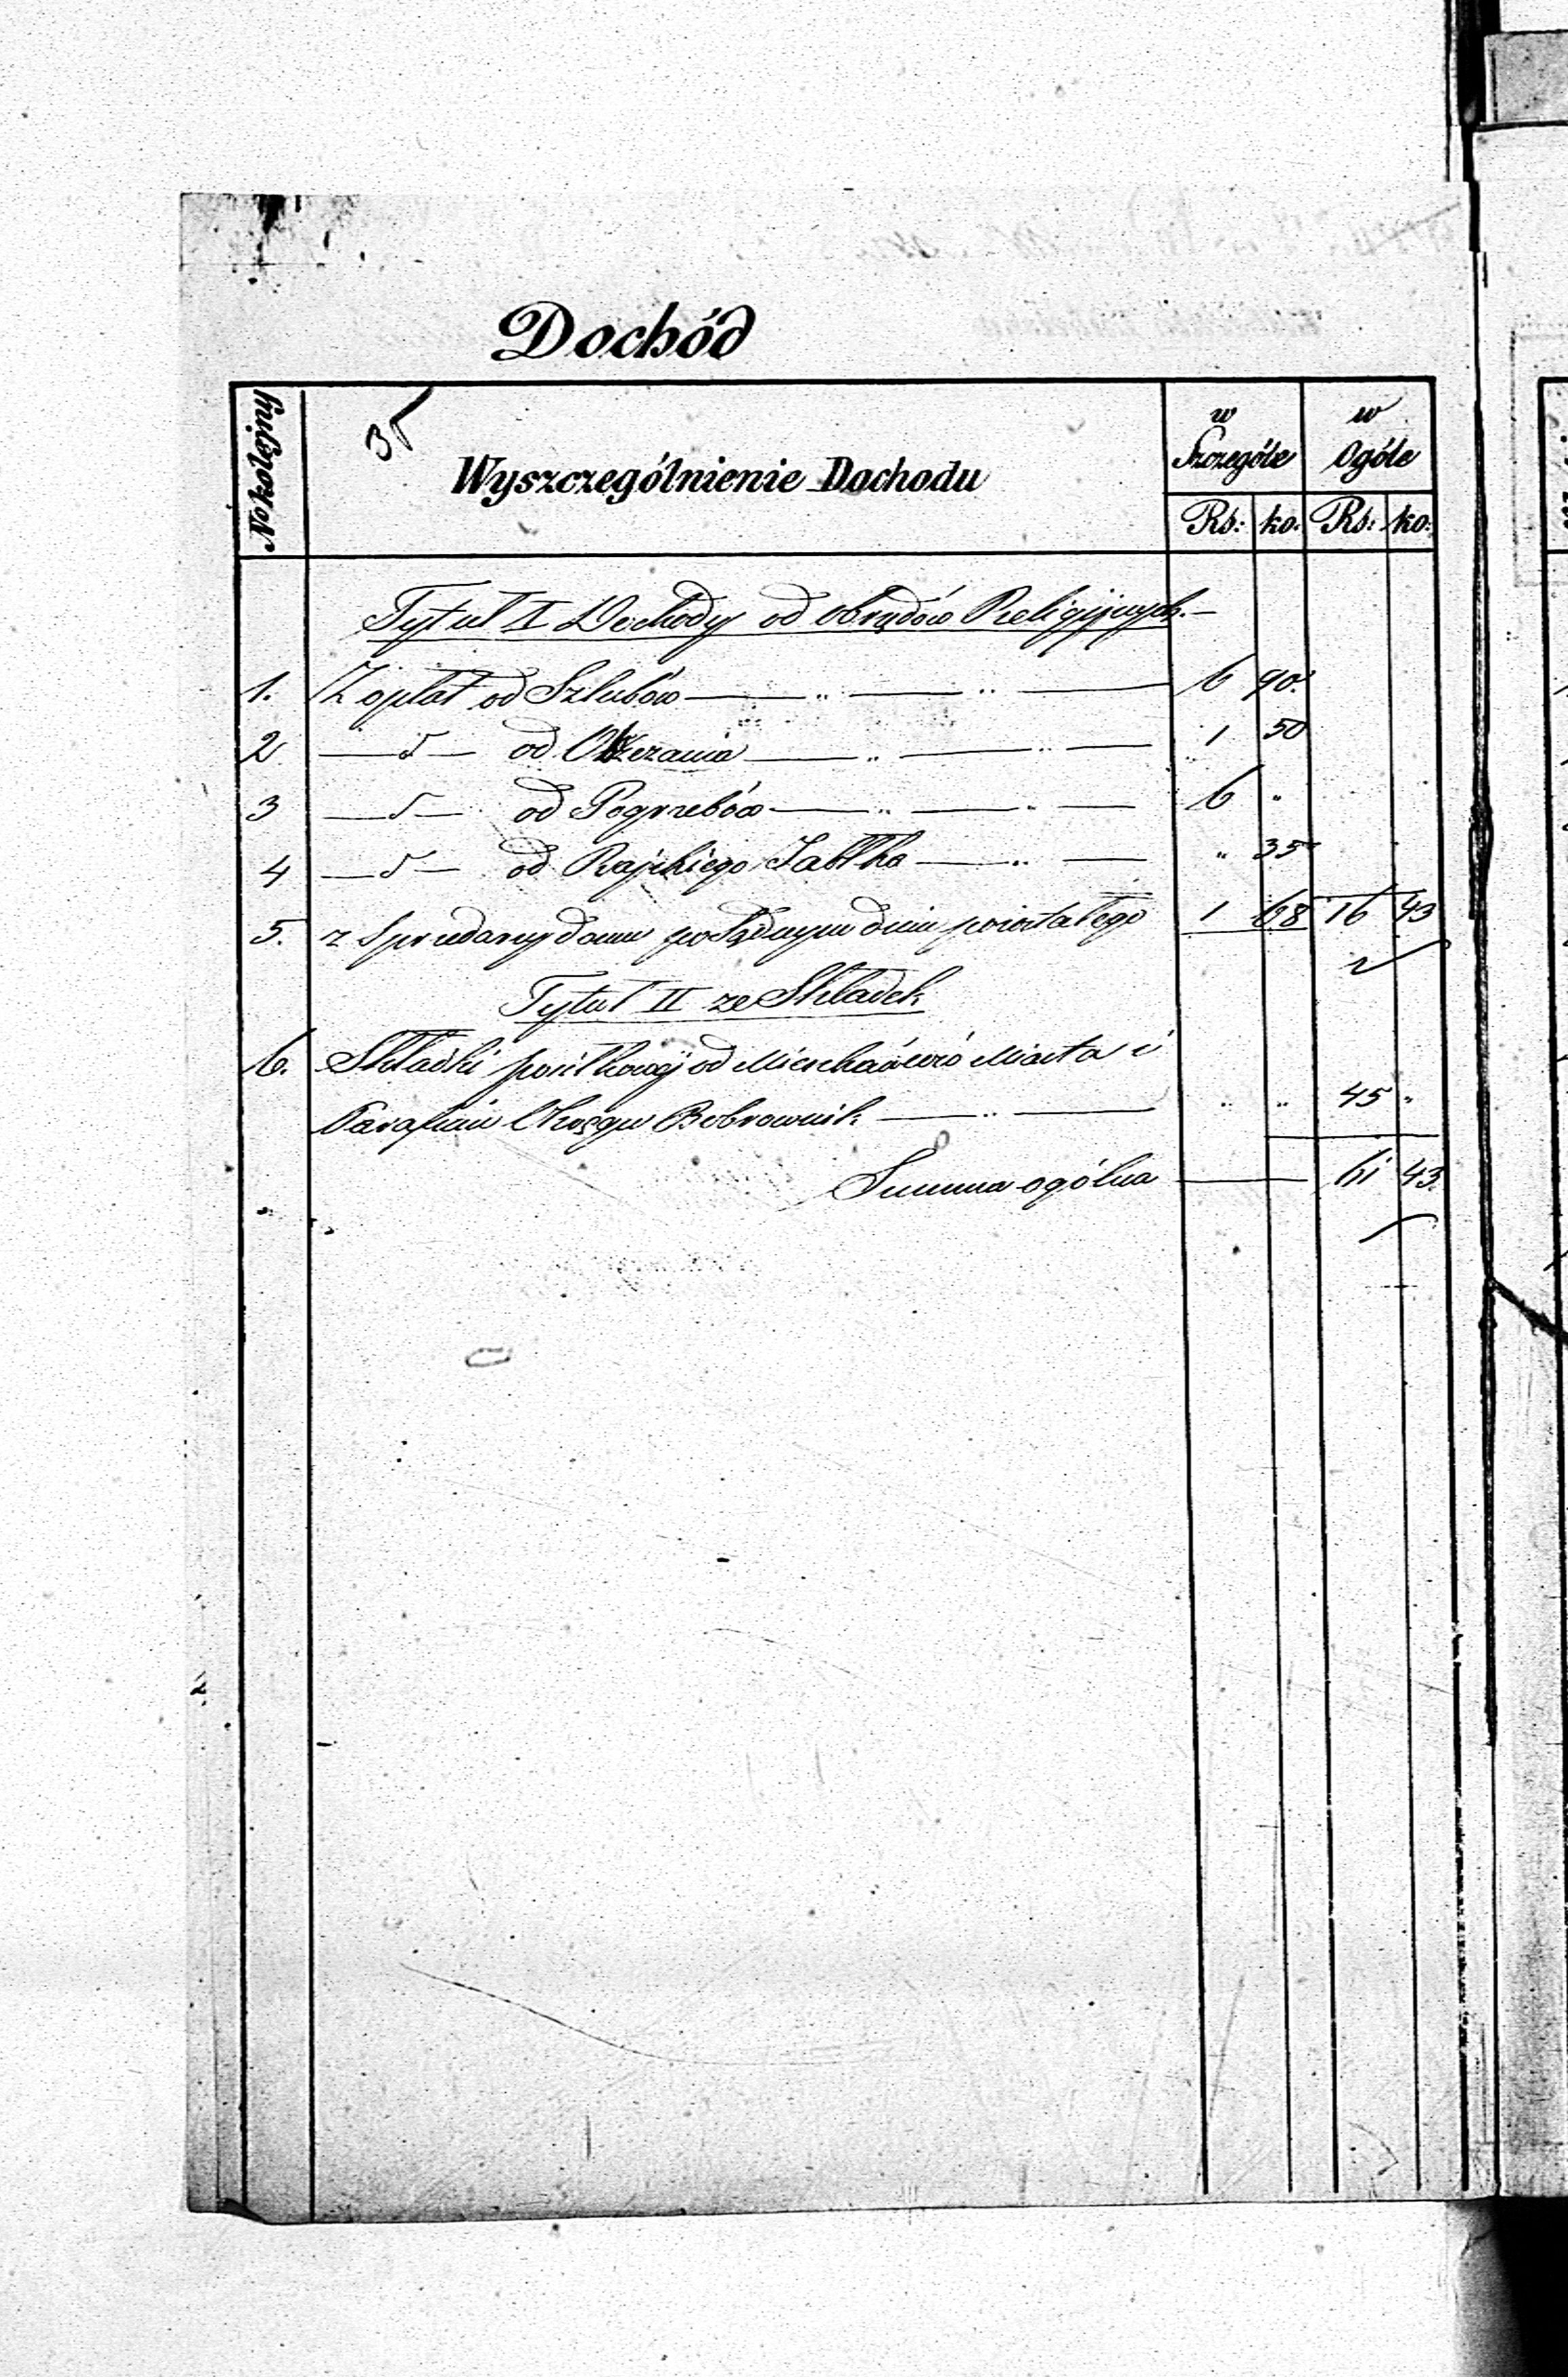 Dochód
No kolejny
35
Wyszczególnienie Dochodu
w Szczególe
w Ogóle
Rs: ko. Rs: ko:
Tytuł I Dochody od obrzędów Religijnych.—
1. Z opłat od Szlubów — „ — „ — 6 90.
2 — d — od Obrzezania — „ — „ — 1 50
3 — d — od Pogrzebów — „ — „ — 6 „
4 — d — od Rajskiego Jabłka — „ — „ 35
5. z Sprzedarzy domu po Sądnym dniu pozostałego 1 68 16 43
Tytuł II ze Składek
6. Składki posiłkowej od Mieszkańców Miasta i
Parafian Okręgu Bobrownik — „ — „ „ 45 „
Summa ogólna — 61 43